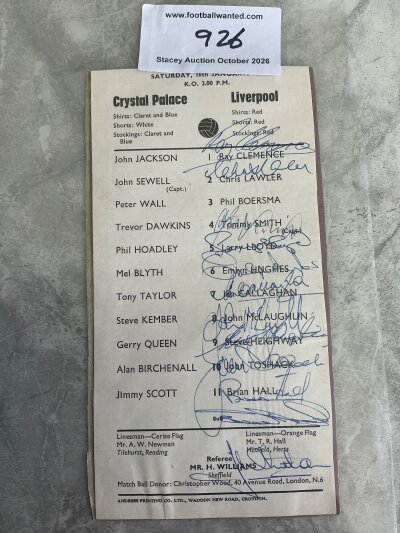 www.footballwanted.com
926
Stacey Auction October 2026
SATURDAY, 16th JANUARY
K.O. 3.00 P.M.
Crystal Palace Liverpool
Shirts: Claret and Blue Shirts: Red
Shorts: White Shorts: Red
Stockings: Claret and Stockings: Red
Blue
John JACKSON 1 Ray CLEMENCE
John SEWELL 2 Chris LAWLER
(Capt.)
Peter WALL 3 Phil BOERSMA
Trevor DAWKINS 4 Tommy SMITH
(Capt.)
Phil HOADLEY 5 Larry LLOYD
Mel BLYTH 6 Emlyn HUGHES
Tony TAYLOR 7 Ian CALLAGHAN
Steve KEMBER 8 John McLAUGHLIN
Gerry QUEEN 9 Steve HEIGHWAY
Alan BIRCHENALL 10 John TOSHACK
Jimmy SCOTT 11 Brian HALL
Sub
Linesman—Cerise Flag Linesman—Orange Flag
Mr. A. W. Newman Mr. T. R. Hall
Tilehurst, Reading Hatfield, Herts
Referee
MR. H. WILLIAMS
Sheffield
Match Ball Donor: Christopher Wood, 40 Avenue Road, London, N.6
ANDRESS PRINTING CO. LTD., WADDON NEW ROAD, CROYDON.